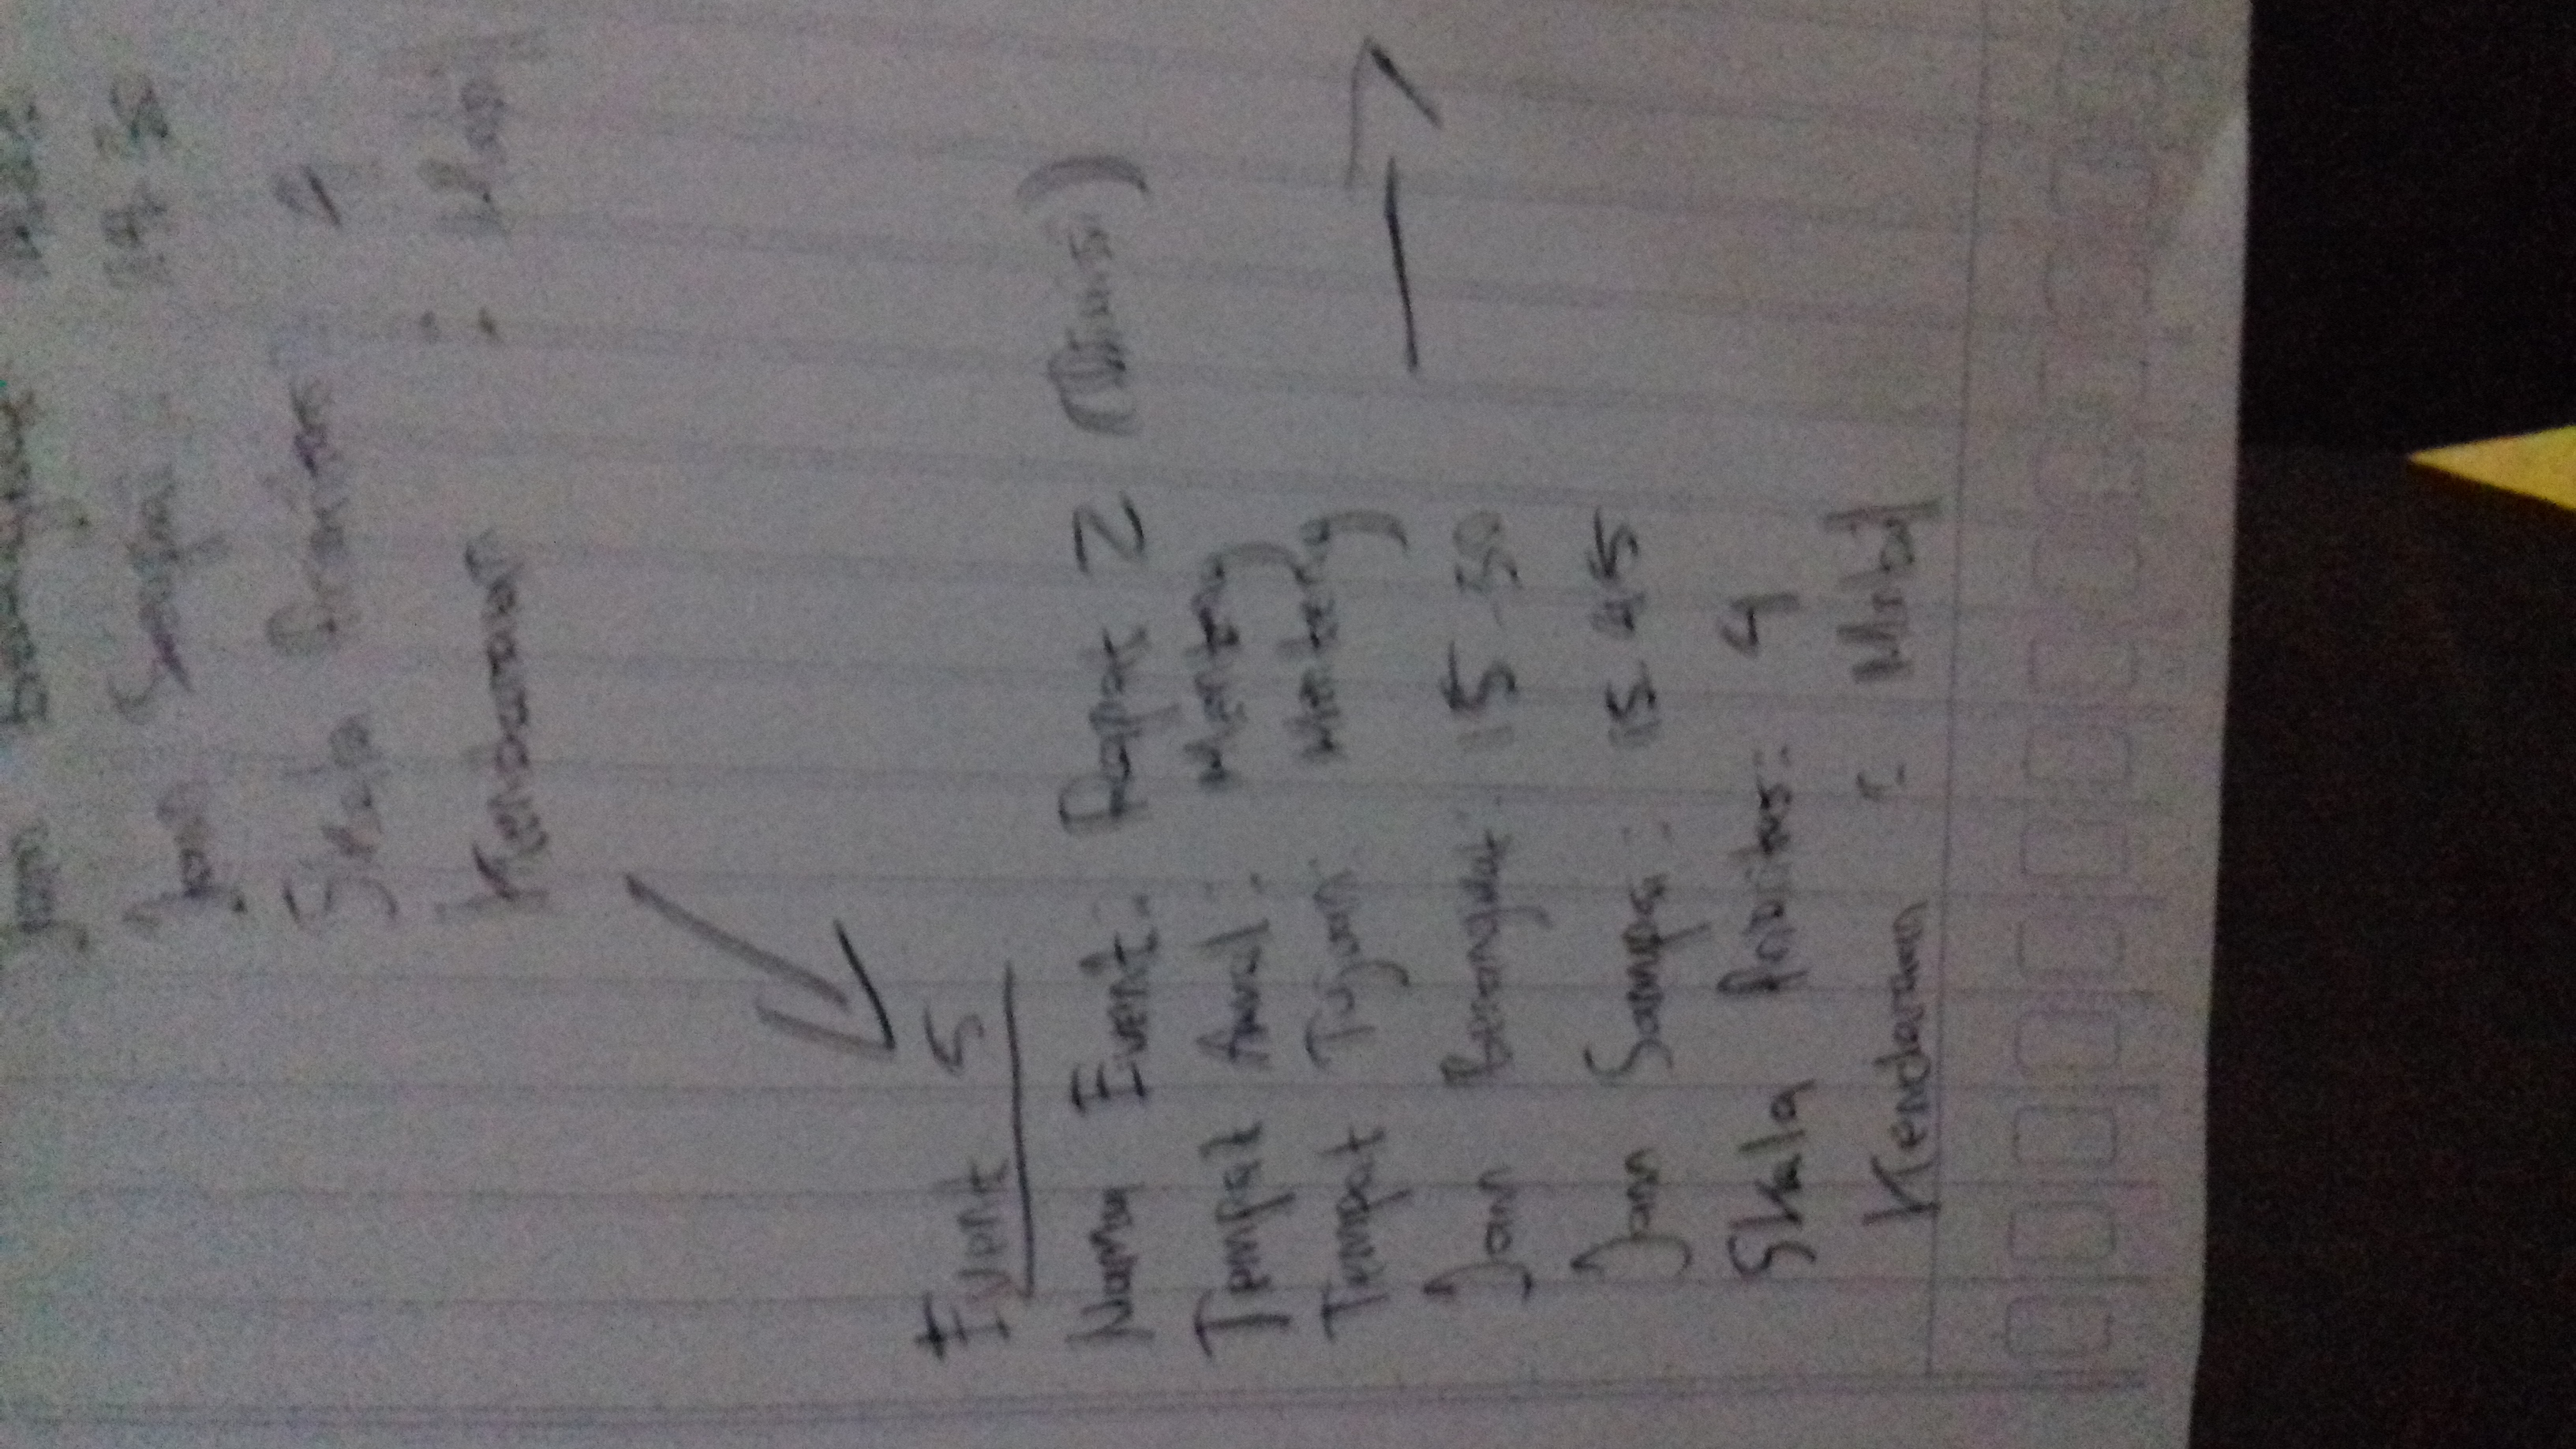 Jam
Jam Sampai : 14.30
Skala Prioritas :
Kendaraan :
Event 5
Nama Event : Rapat 2 (Divisi)
Tempat Awal : Menteng
Tempat Tujuan : Menteng
Jam Berangkat : 15.50
Jam Sampai : 15.45
Skala Prioritas : 4
Kendaraan : Mobil